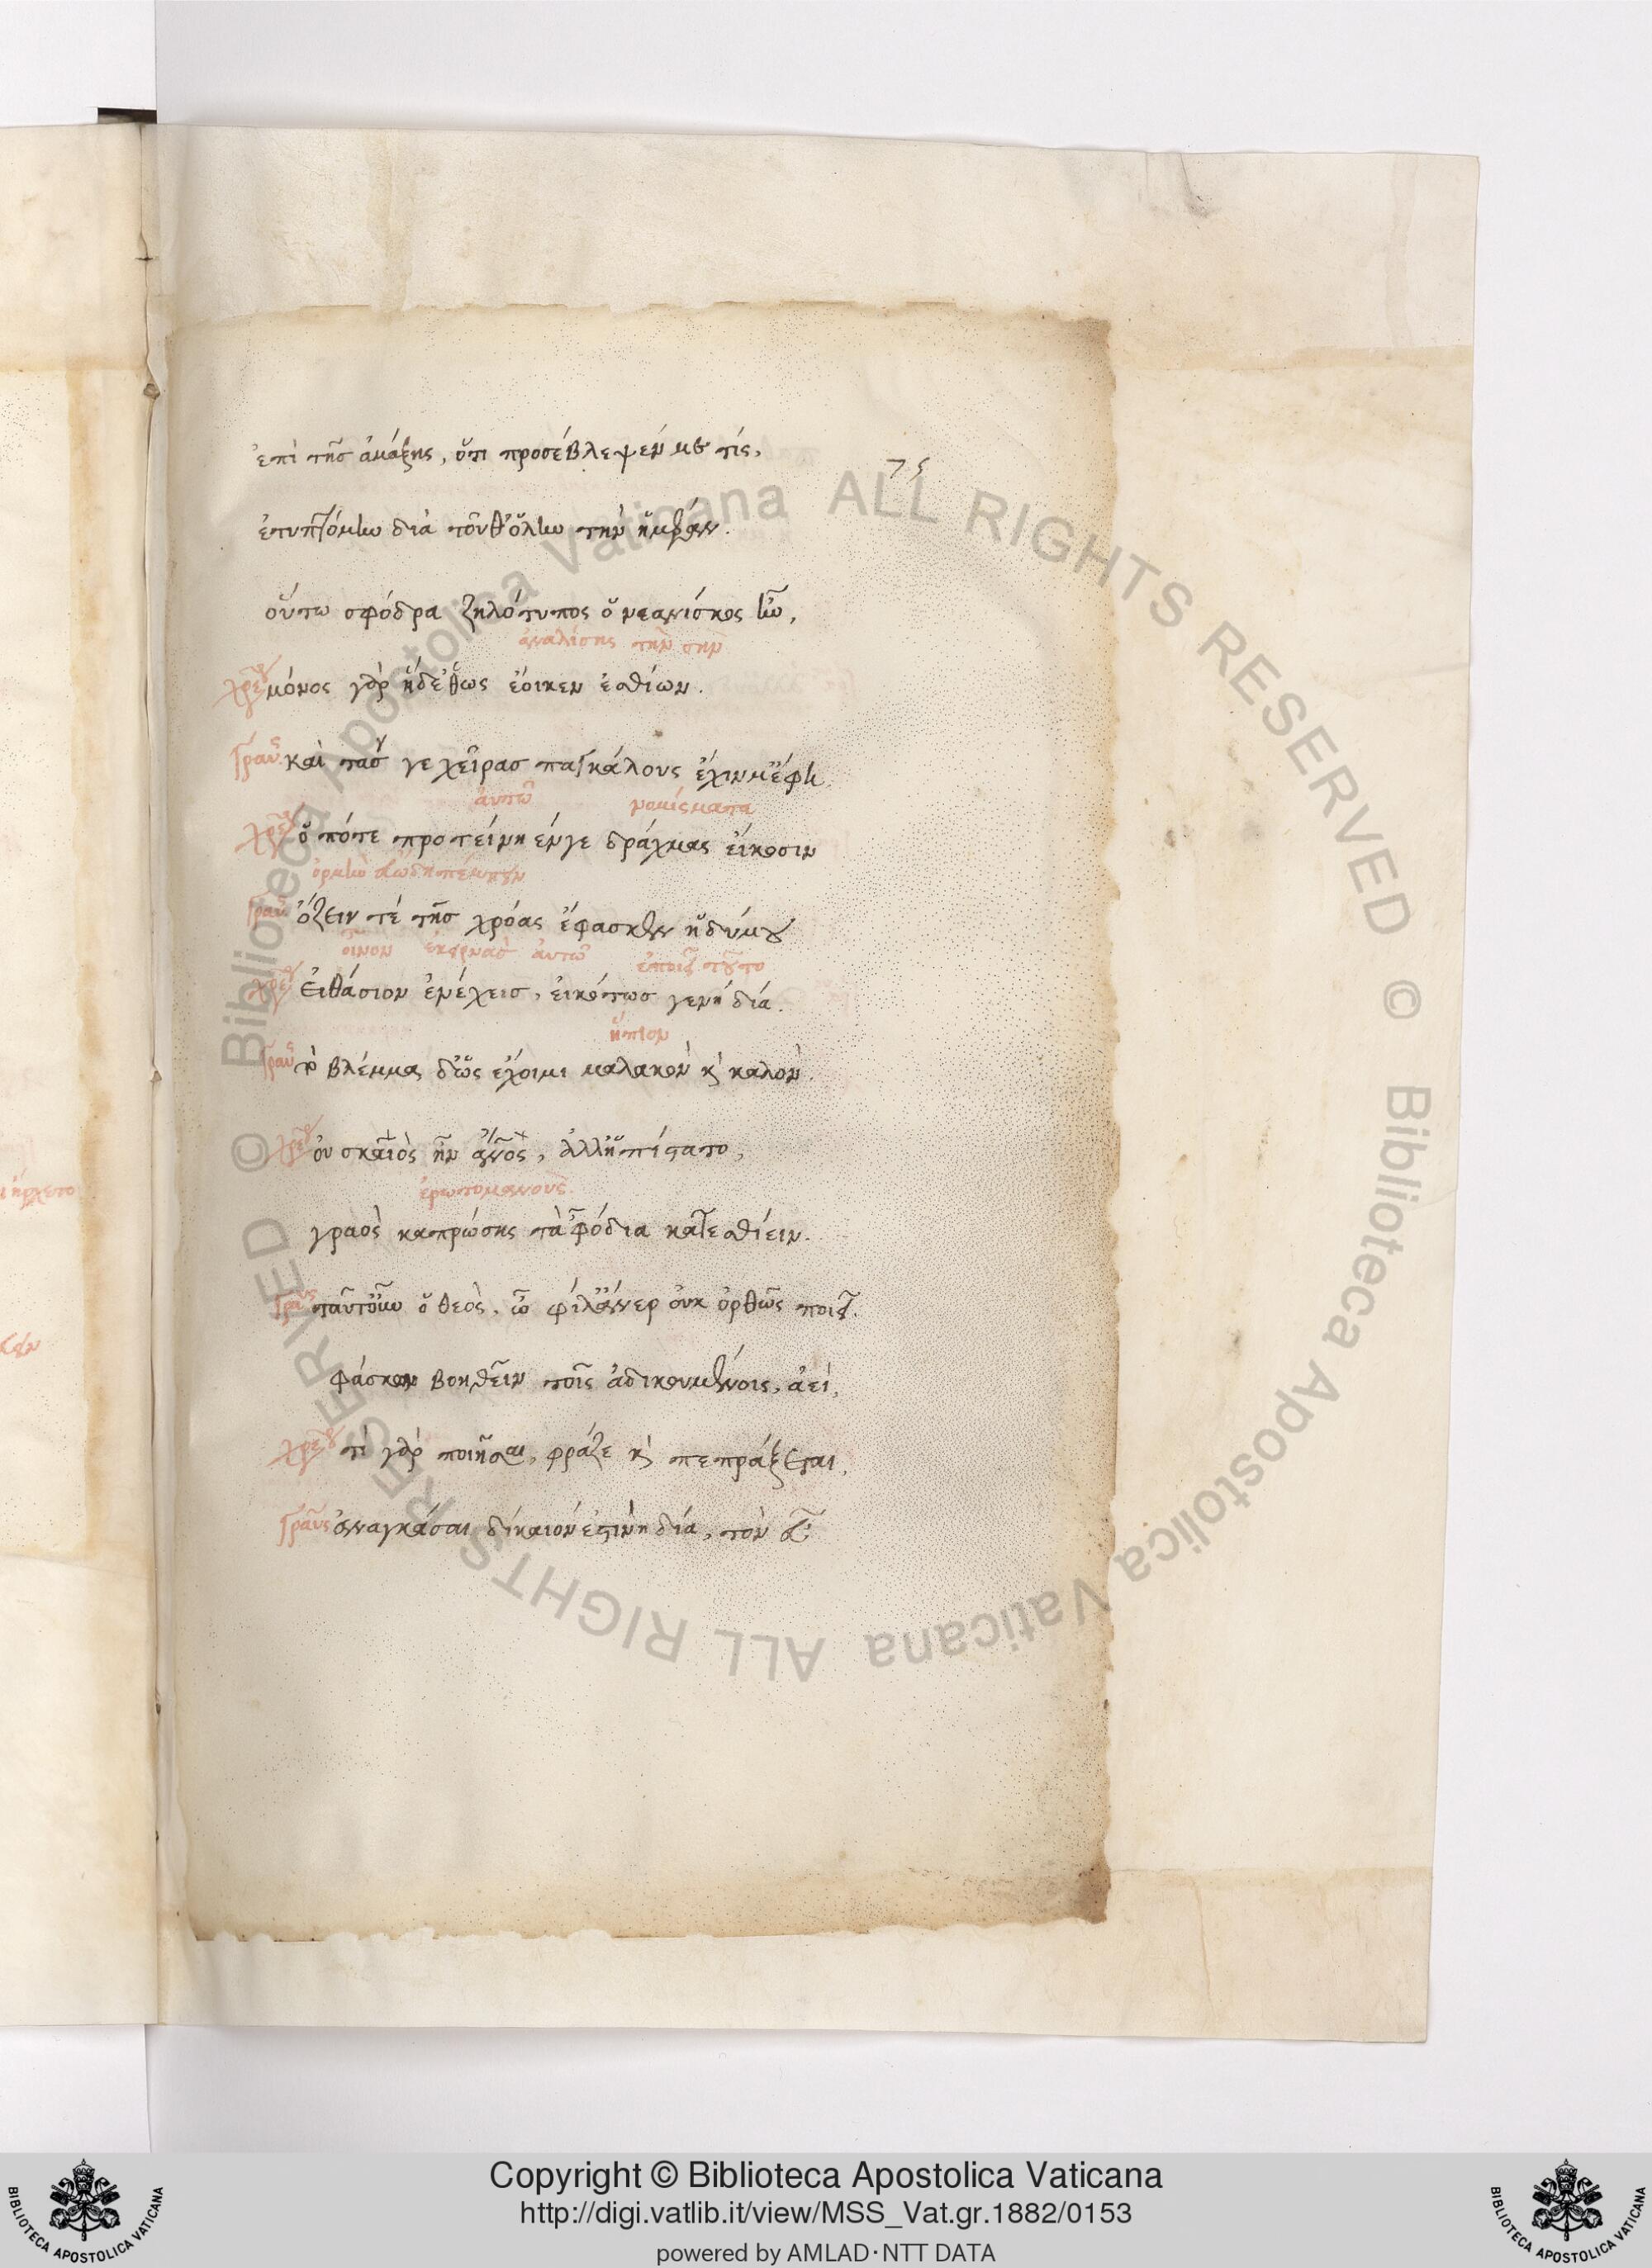 ἐπὶ τῆς ἁμάξης, ὅτι προσέβλεψέν με τίς,
ἐτυπτόμην διὰ τοῦθ' ὅλην τὴν ἡμέραν.
οὕτω σφόδρα ζηλότυπος ὁ νεανίσκος ἦν,
ἀναλίσης τὴν σὴν
χρε μόνος γὰρ ἥδεθ' ὡς ἔοικεν ἐσθίων.
γραῦς καὶ τάσ γε χεῖρασ παγκάλους ἔχειν μ' ἔφη
αὐτῶ νομίσματα
χρε ὁπότε προτείνη ἔν γε δράχμας εἴκοσιν
γραῦς ὄζειν τέ τῆσ χρόας ἔφασκεν ἡδύ μου
οἶνον ἐκέρνασ αὐτῶ ἐποίει τοῦτο
χρε εἰ θάσιον ἐνέχεισ, εἰκότωσ γε νὴ δία.
ἥπιον
γραῦς τὸ βλέμμα δ' ὡς ἔχοιμι μαλακὸν κ καλὸν.
χρε οὐ σκαιὸς ἦν ἄνος, ἀλλ' ἠπίστατο,
ἐρωτομανοῦς
γραὸς καπρώσης τὰ φόδια κατεσθίειν.
γραῦς ταῦτ' οὖν ὁ θεὸς, ὦ φίλ' ἄνερ οὐκ ὀρθῶς ποιεῖ.
φάσκων βοηθεῖν τοῖς ἀδικουμένοις, ἀεί,
χρε τί γὰρ ποιῆσαι, φράζε κ πεπράξεται,
γραῦς ἀναγκάσαι δίκαιόν ἐστι νὴ δία, τὸν
Copyright © Biblioteca Apostolica Vaticana
http://digi.vatlib.it/view/MSS_Vat.gr.1882/0153
powered by AMLAD·NTT DATA
© Biblioteca Apostolica Vaticana ALL RIGHTS RESERVED © Biblioteca Apostolica Vaticana ALL RIGHTS RESERVED
BIBLIOTECA APOSTOLICA VATICANA
BIBLIOTECA APOSTOLICA VATICANA